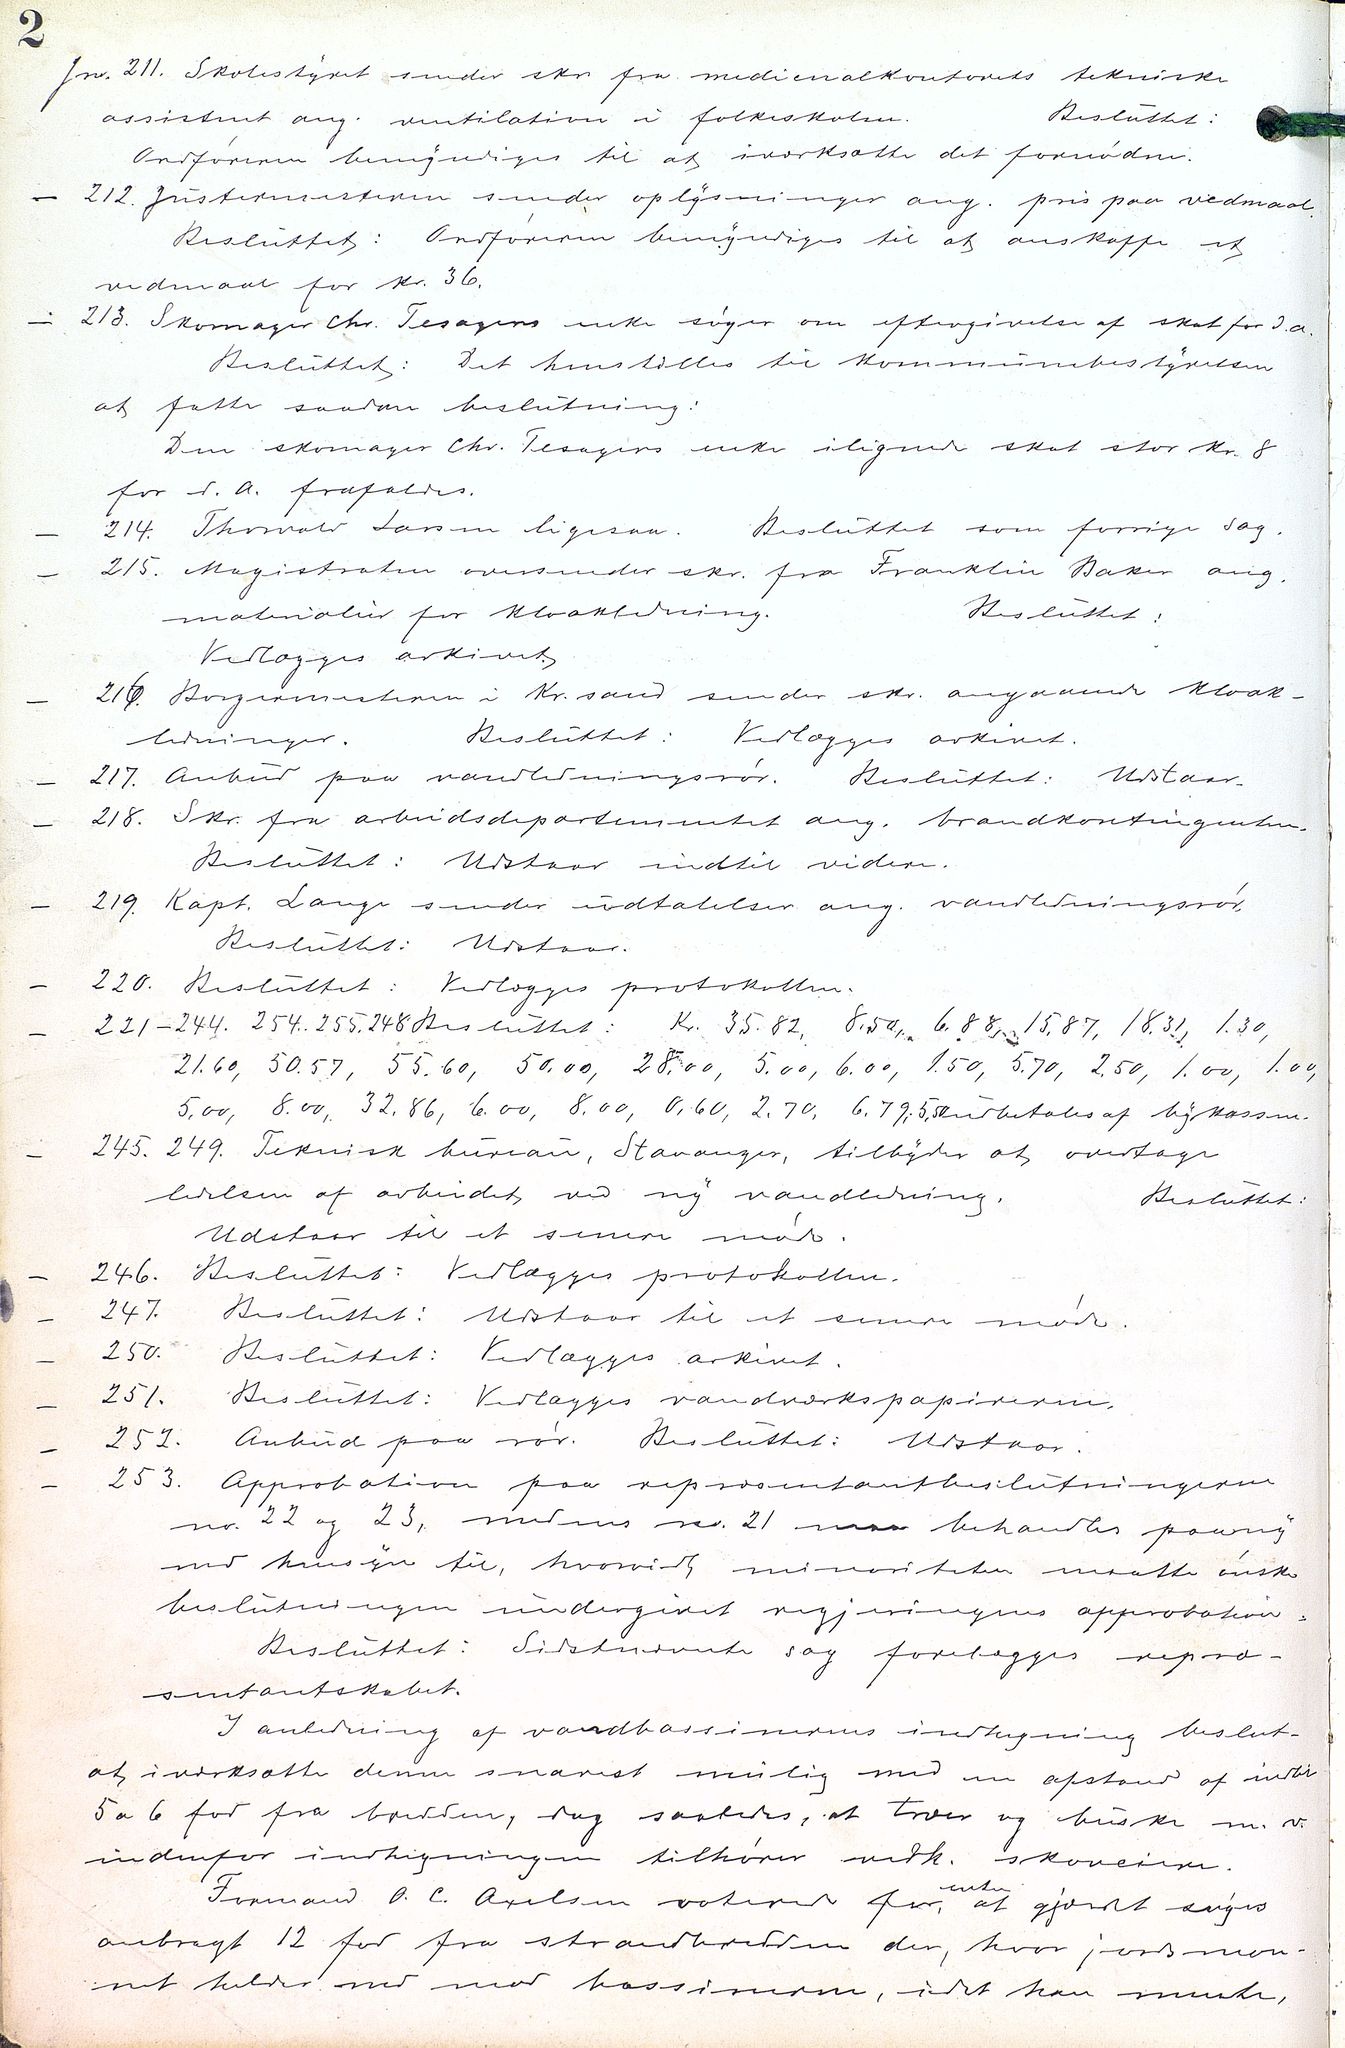 2
Jnr. 211. Skolestyret sender skr fra medicinalkontorets tekniske
assistent ang. ventilation i folkeskolen. Besluttet:
Ordføreren bemyndiges til at iværksætte det fornødne.
— 212. Justermesteren sender oplysninger ang. pris paa vedmaal.
Besluttet: Ordføreren bemyndiges til at anskaffe et
vedmaal for kr. 36.
— 213. Skomager Chr. Tesagers enke søger om eftergivelse af skat for d. a.
Besluttet: Det henstilles til kommunebestyrelsen
at fatte saadan beslutning:
Den skomager Chr. Tesagers enke ilignede skat stor kr. 8
for d. A. frafaldes.
— 214. Thorvald Larsen ligesaa. Besluttet som forrige sag.
— 215. Magistraten oversender skr. fra Franklin Baker ang.
materialier for kloakledning. Besluttet:
Vedlægges arkivet.
— 216. Borgermesteren i Kr.sand sender skr. angaaende kloak-
ledninger. Besluttet: Vedlægges arkivet.
— 217. Anbud paa vandledningsrør. Besluttet: Udstaar.
— 218. Skr. fra arbeidsdepartementet ang. brandkontingenten.
Besluttet: Udstaar indtil videre.
— 219. Kapt. Lange sender udtalelser ang. vandledningsrør.
Besluttet: Udstaar.
— 220. Besluttet: Vedlægges protokollen.
— 221–244. 254. 255. 248 Besluttet: Kr. 35.82, 8.50, 6.88, 15.87, 18.31, 1.30,
21.60, 50.57, 55.60, 50.00, 28.00, 5.00, 6.00, 1.50, 5.70, 2.50, 1.00, 1.00,
5.00, 8.00, 32.86, 6.00, 8.00, 0.60, 2.70, 6.79, udbetales af bykassen.
— 245. 249. Teknisk bureau, Stavanger, tilbyder at overtage
ledelsen af arbeidet ved ny vandledning. Besluttet:
Udstaar til et senere møde.
— 246. Besluttet: Vedlægges protokollen.
— 247. Besluttet: Udstaar til et senere møde.
— 250. Besluttet: Vedlægges arkivet.
— 251. Besluttet: Vedlægges vandværkspapirerne.
— 252. Anbud paa rør. Besluttet: Udstaar.
— 253. Approbation paa repræsentantbeslutningerne
nr. 22 og 23, medens no. 21 maa behandles paany
med hensyn til, hvorvidt minoriteten maatte ønske
beslutningen undergivet regjeringens approbation.
Besluttet: Sidstnævnte sag forelægges repræ-
sentantskabet.
I anledning af vandbassinernes indhegning beslut-
at iværksætte denne snarest mulig med en afstand af indtil
5 a 6 fod fra bredden, dog saaledes, at træer og buske m. v.
indenfor indhegningen tilhører vedk. skoveiere.
Formand O. C. Axelsen voterede for, at gjærdet søges
anbragt 12 fod fra strandbredden der, hvor jordsmon-
net helder ned mod bassinerne, idet han mente,